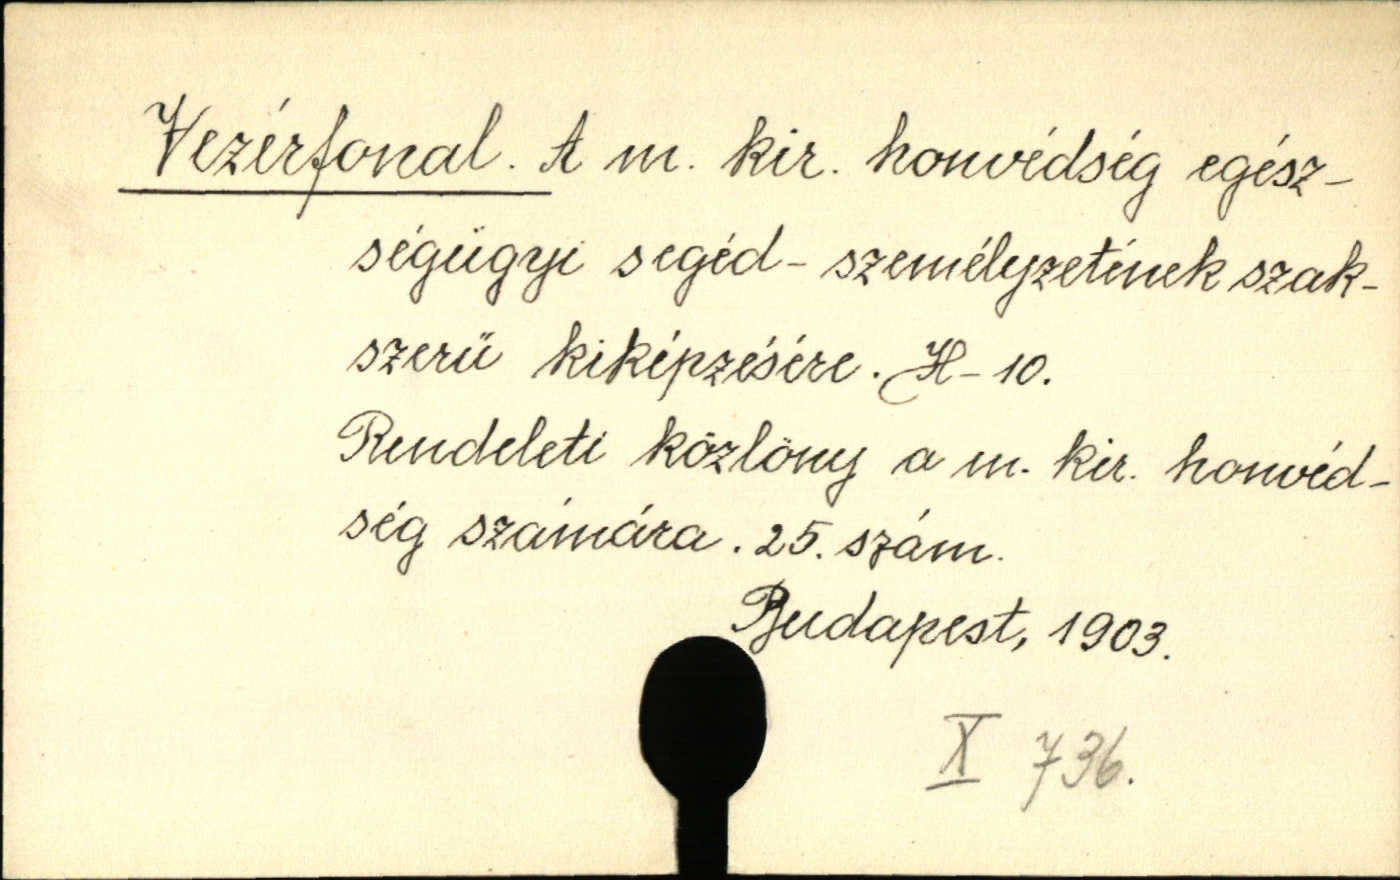 Vezérfonal. A m. kir. honvédség egész-
ségügyi segéd-személyzetének szak-
szerű kiképzésére. H-10.
Rendeleti közlöny a m. kir. honvéd-
ség számára. 25. szám.
Budapest, 1903.
X 736.